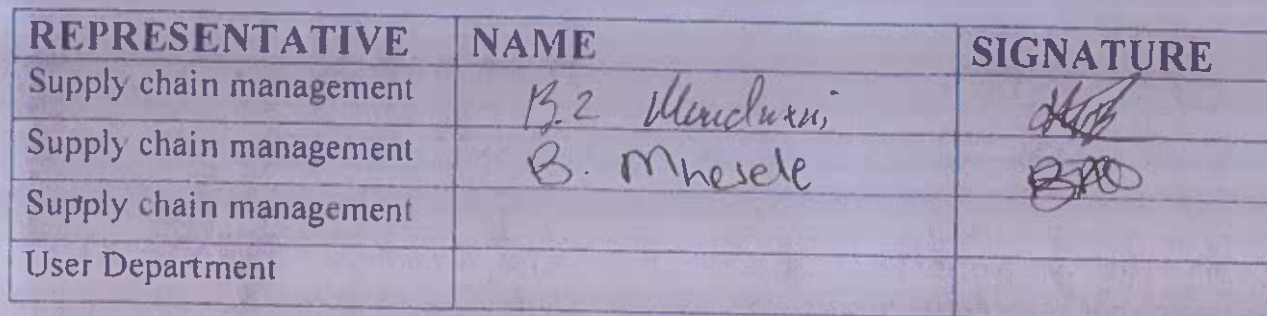 REPRESENTATIVE NAME SIGNATURE
Supply chain management B.Z
Supply chain management B. Mhesele
Supply chain management
User Department